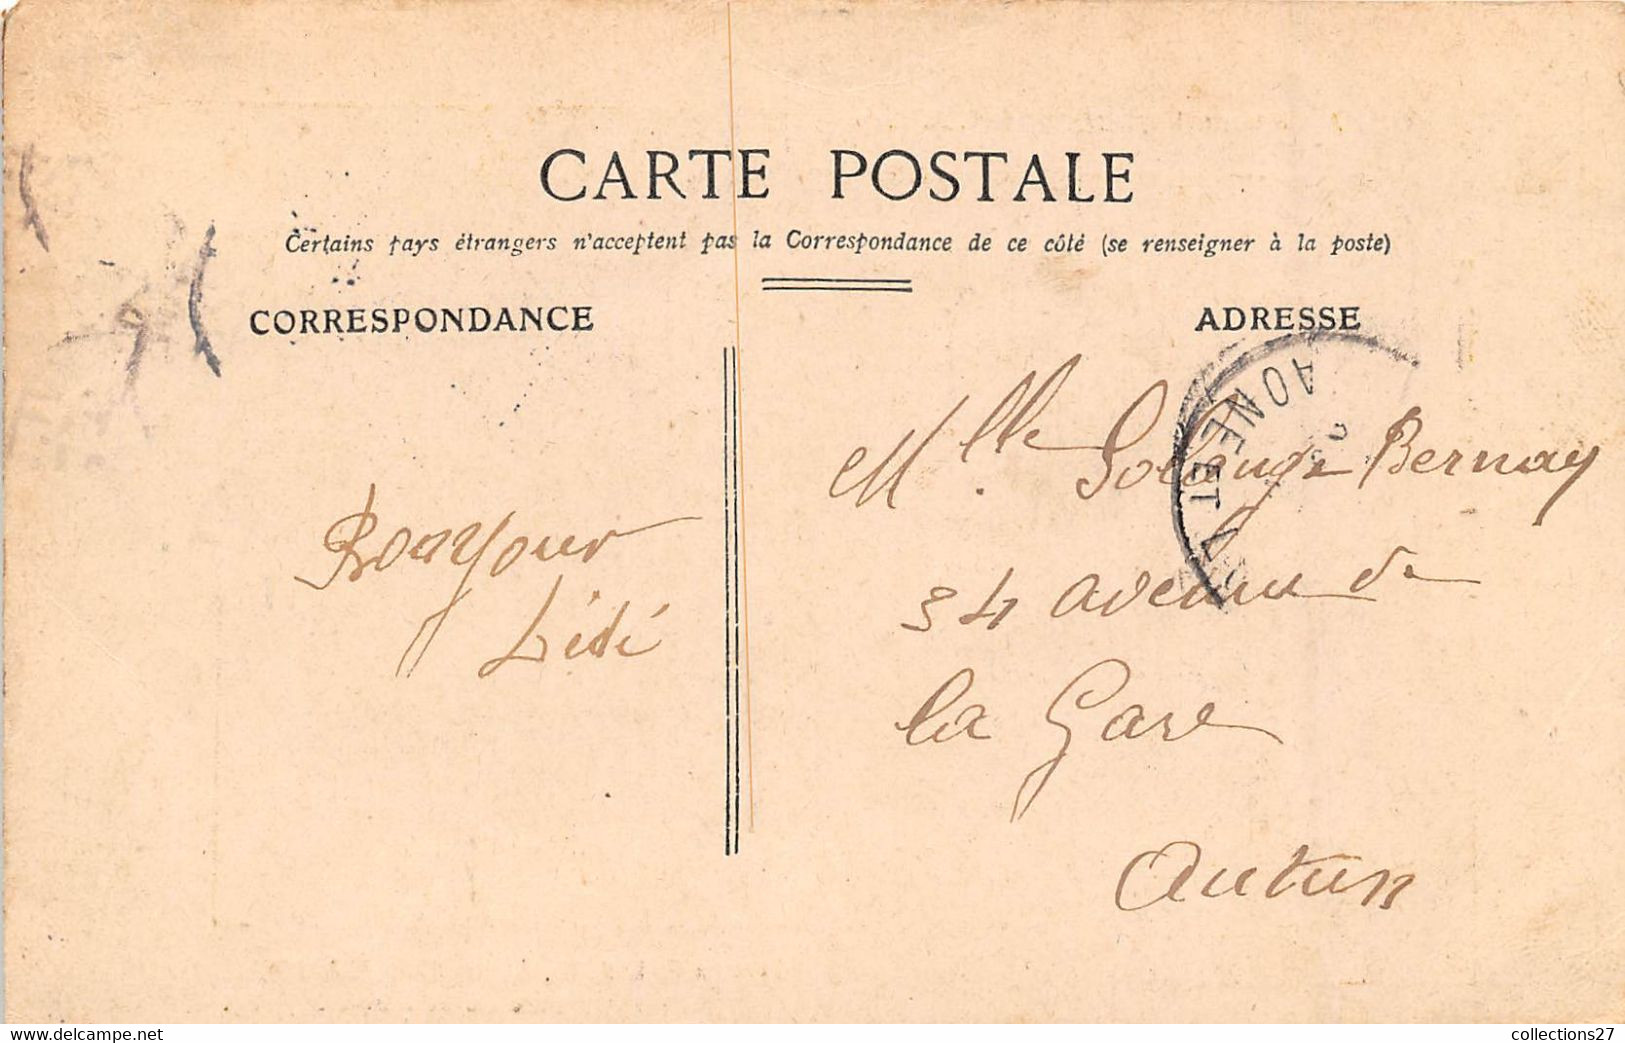 CARTE POSTALE
Certains pays étrangers n'acceptent pas la Correspondance de ce côté (se renseigner à la poste)
CORRESPONDANCE
ADRESSE
Bonjour
Lili
Mlle Solange Bernay
34 avenue de
la Gare
Autun
AONE ET
www.delcampe.net
collections27